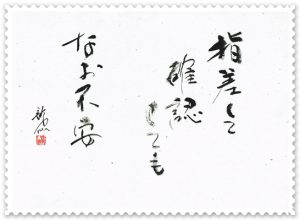 指差して
確認
しても
なお不安